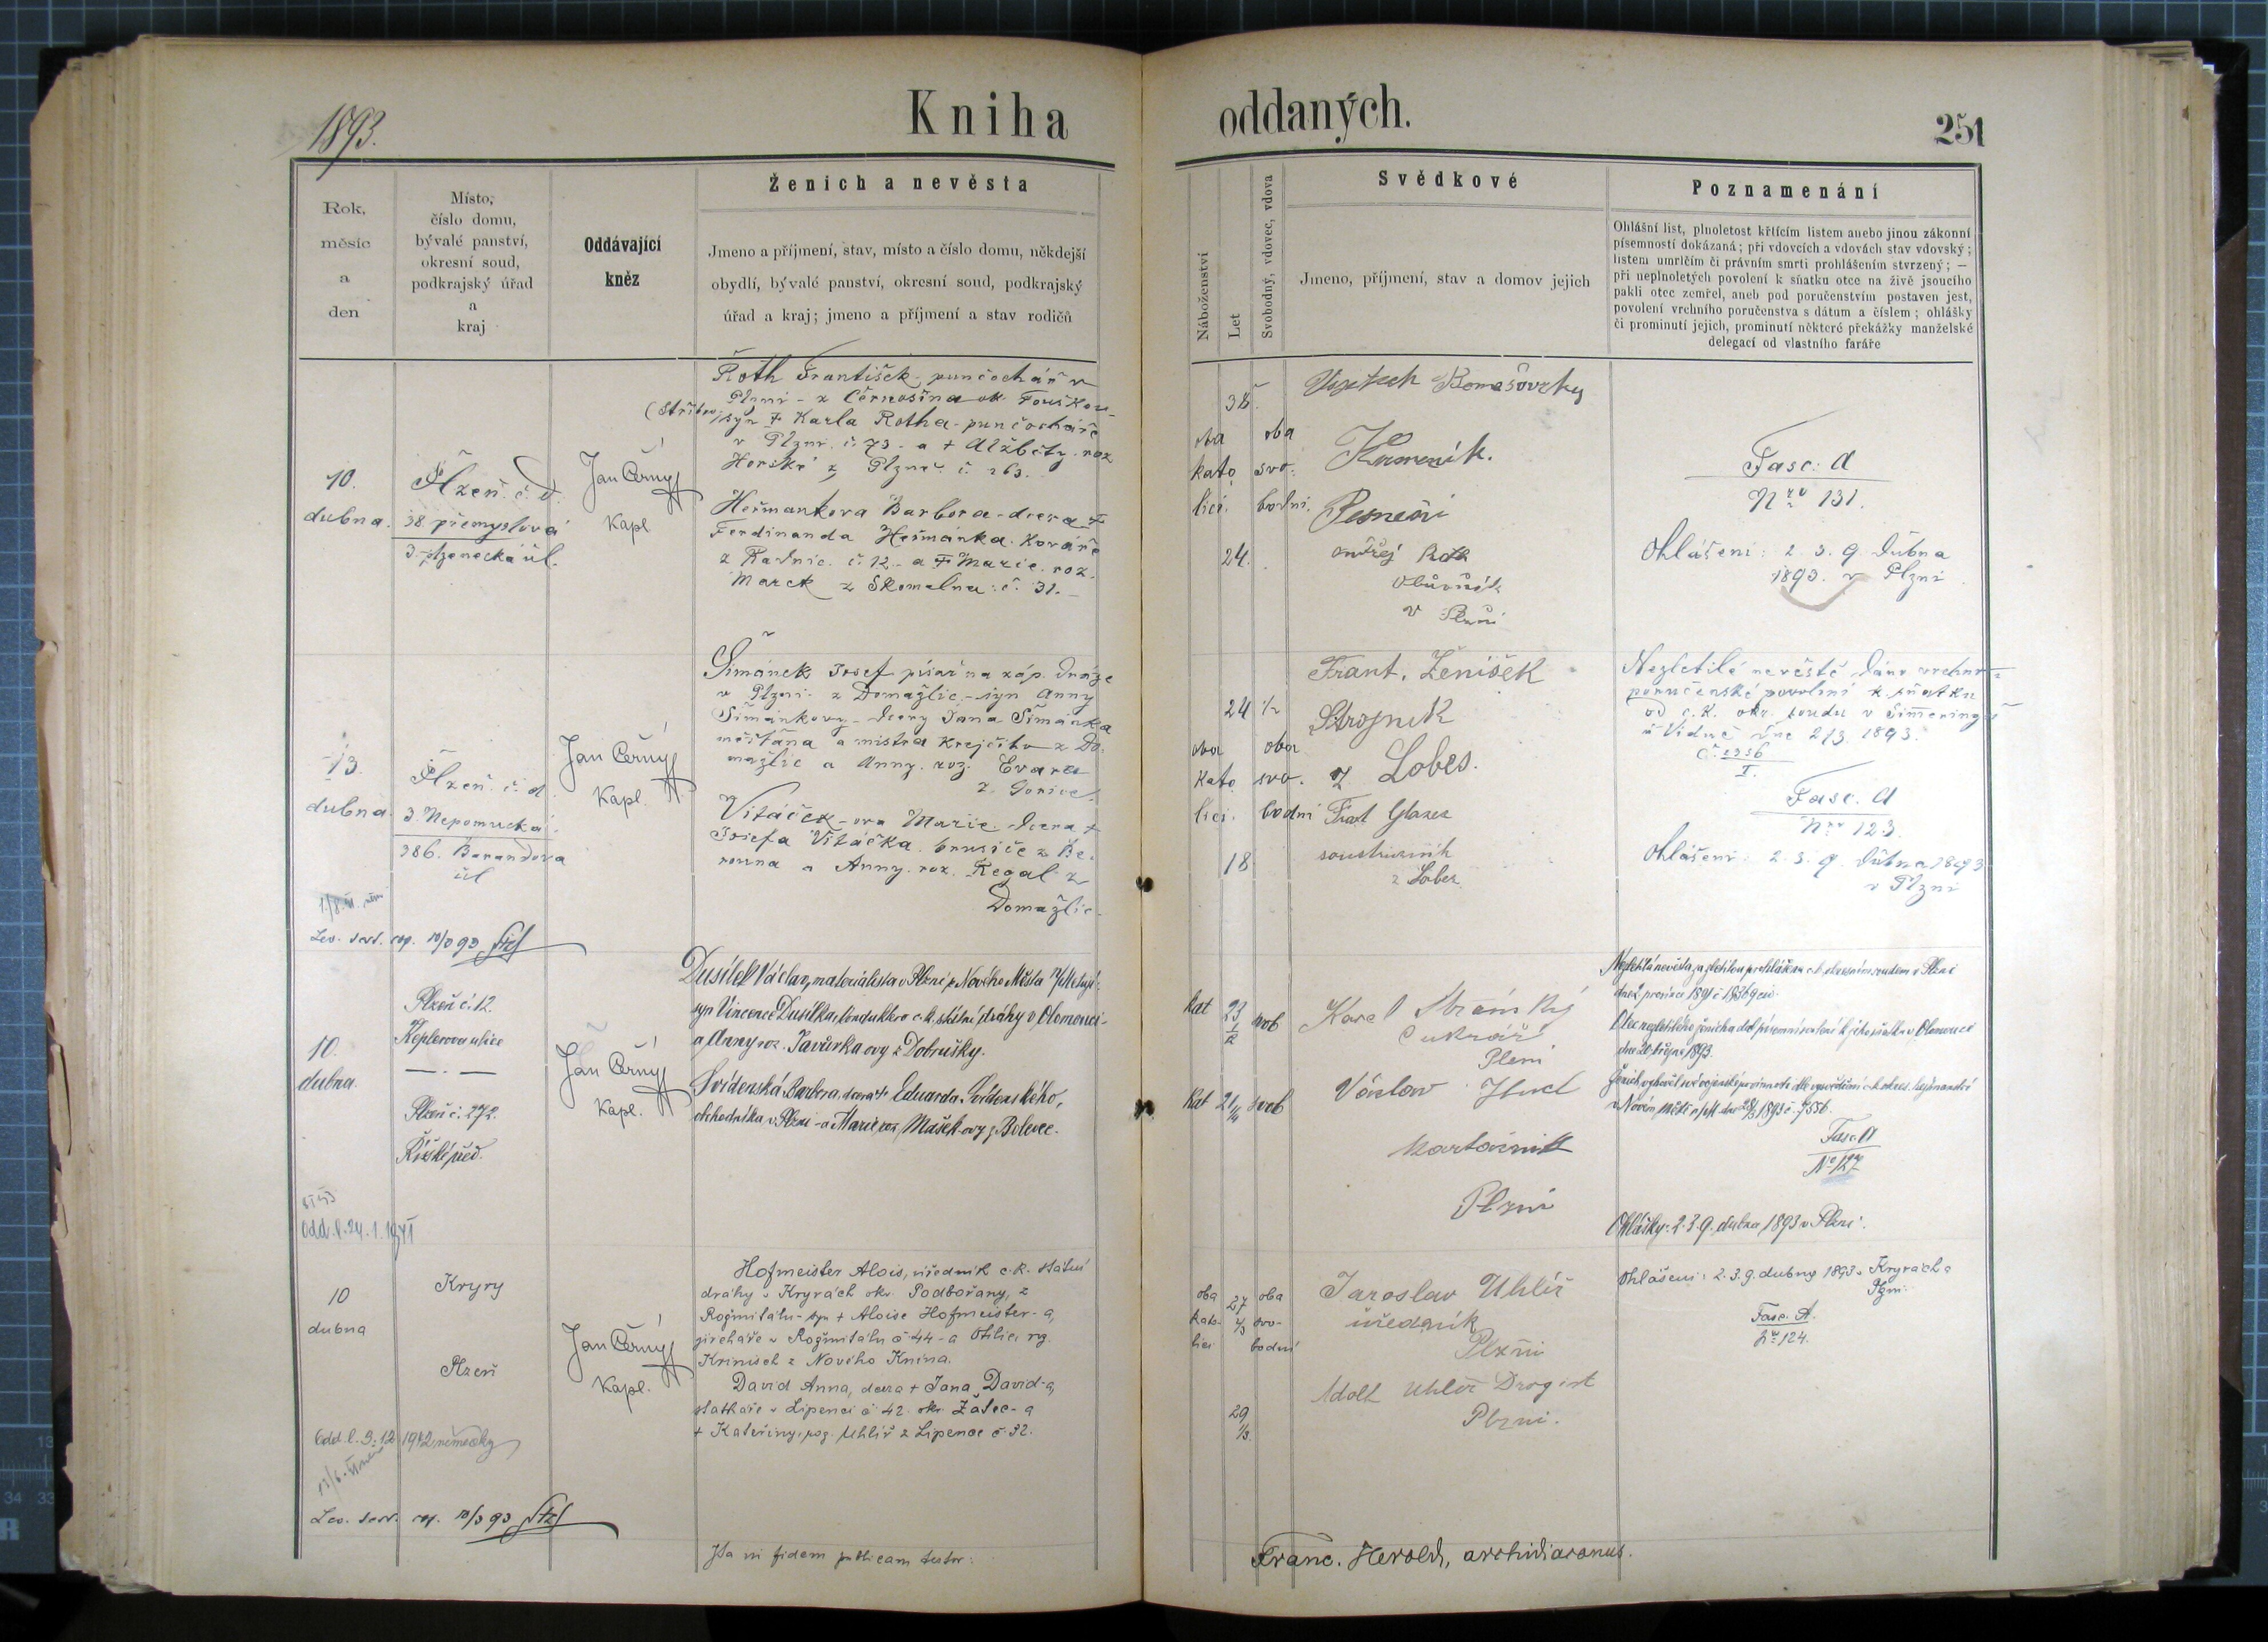 1893.
Kniha oddaných.
251
Rok,
měsíc
a
den
Místo,
číslo domu,
bývalé panství,
okresní soud,
podkrajský úřad
a
kraj
Oddávající
kněz
Ženich a nevěsta
Jmeno a příjmení, stav, místo a číslo domu, někdejší
obydlí, bývalé panství, okresní soud, podkrajský
úřad a kraj; jmeno a příjmení a stav rodičů
Náboženství
Let
Svobodný, vdovec, vdova
Svědkové
Jmeno, příjmení, stav a domov jejich
Poznamenání
Ohlášní list, plnoletost křticím listem anebo jinou zákonní
písemností dokázaná; při vdovcích a vdovách stav vdovský;
listem umrlčím či právním smrti prohlášením stvrzený; —
při neplnoletých povolení k sňatku otce na živě jsoucího
pakli otec zemřel, aneb pod poručenstvím postaven jest,
povolení vrchního poručenstva s dátum a číslem; ohlášky
či prominutí jejich, prominutí některé překážky manželské
delegací od vlastního faráře
10.
dubna.
Plzeň č. d.
38 přemyslová
Jan Černý
Kapl
Roth František, punčochář v
Plzni - z Černošína ok.
syn + Karla Rotha - punčocháře
v Plzni č. 73 - a + Alžběty roz
Horské z Plzně č. 263.
Heřmankova Barbora - dcera +
Ferdinanda Heřmánka kováře
z Radnic č. 12 - a + Marie roz.
Marek z Skomelna č. 31.
38
oba
kato
lici.
oba
svo.
bodni.
24.
Kameník.
Ondřej Roth
Obuvník
v Plzni
Fasc: A
Nro 131.
Ohlášení: 2. 3. 9. dubna
1893. v Plzni
13.
dubna.
Plzeň č. d.
3. Nepomucká
386.
ul
Jan Černý
Kapl.
Šimánek Josef písař na záp. dráze
v Plzni z Domažlic - syn Anny
Šimankovy - dcery Jana Šimánka
měšťana a mistra krejčího z Do-
mažlic a Anny roz.
Vitáček-ova Marie dcera +
Josefa Vitáčka brusiče z Be-
rouna a Anny roz. Regal z
Domažlic
24 1/2
oba
kato
lici.
oba
svo.
bodni
18
Frant. Ženíšek
Strojník
z Lobes.
Frant Glaser
soustružník
z Lobez
Nezletilé nevěstě dáno vrchno-
poručenské povolení k sňatku
od c. k. okr. soudu v Simmeringu
u Vídně dne 2/3. 1893.
Fasc. A
Nro 123.
Ohlášení: 2. 3. 9. dubna 1893
v Plzni
10.
dubna.
Plzeň č. 12.
Keplerova ulice
Plzeň č. 272.
Jan Černý
Kapl.
Dusílek Václav, materialista v Plzni z Nového Města n/Metují-
syn Vincence Dusílka, konduktéra c. k. státní dráhy v Olomouci-
a Anny roz. Javůrka ovy z Dobrušky.
Svídenská Barbora, dcera + Eduarda Svídenského,
obchodníka v Plzni - a Marie roz. Mašek-ovy z Bolevce.
kat
23
1/2
svob
Kat
21
svob
Karel Stránský
Cukrář
Plzni
Václav
Kartáčník
Plzni
Nezletilá nevěsta za zletilou prohlášena c. k. okresním soudem v Plzni
Otec nezletilého ženicha dal písemní svolení k jeho sňatku v Olomouci
dne 20. března 1893.
Fasc. A
No 127
Ohlášky: 2. 3. 9. dubna 1893 v Plzni.
Odd. l. 24. 1. 1941
10
dubna
Kryry
Plzeň
Jan Černý
Kapl.
Hofmeister Alois, úředník c. k. státní
dráhy v Kryrách okr. Podbořany, z
Rožmitálu - syn + Aloise Hofmeister-a,
jircháře v Rožmitálu č 44 - a Otilie, roz.
Krinisch z Nového Knína.
David Anna, dcera + Jana David-a,
statkáře v Lipenci č 42. okr. Žatec - a
+ Kateřiny, roz. Uhlíř z Lipence č 32.
oba
kato-
lici
27
oba
svo-
bodní
29
Jaroslav Uhlíř
úředník
Plzni
Adolf Uhlíř Drogist
Plzni.
Ohlášení: 2. 3. 9. dubna 1893 v Kryrách a
Plzni.
Fasc. A.
Nro 124.
Odd. l. 3. 12. 1942 německy
Ita in fidem publicam testor:
Franc. Herold, archidiaconus.